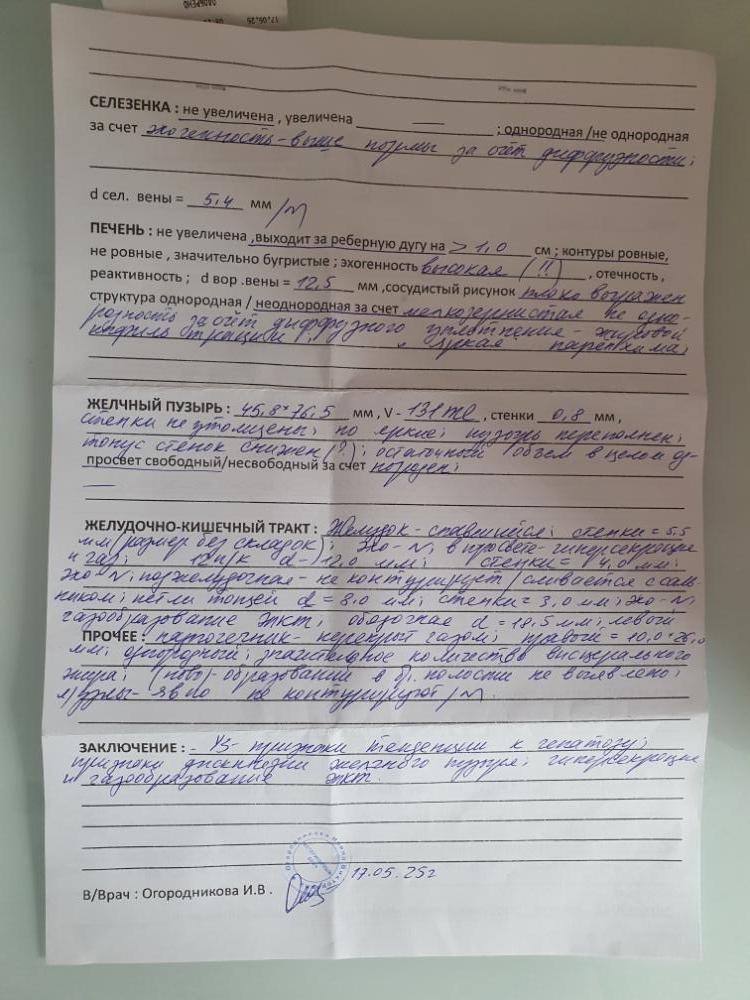 17.05.25
ОДОБРЕНО
СЕЛЕЗЕНКА : не увеличена , увеличена — ; однородная /не однородная
за счет эхогенность - выше нормы за счёт диффузности;
d сел. вены = 5,4 мм /N
ПЕЧЕНЬ : не увеличена ,выходит за реберную дугу на > 1,0 см ; контуры ровные,
не ровные , значительно бугристые ; эхогенность высокая (!!) , отечность ,
реактивность ; d вор .вены = 12,5 мм ,сосудистый рисунок плохо выражен
структура однородная / неоднородная за счет мелкозернистая не одно-
родность за счёт диффузного уплотнения - жировой
инфильтрации; яркая паренхима;
ЖЕЛЧНЫЙ ПУЗЫРЬ : 45,8*76,5 мм , V - 131 мл , стенки 0,8 мм ,
стенки не утолщены; но яркие; пузырь переполнен;
тонус стенок снижен (?); остаточный объем в целом
просвет свободный/несвободный за счет —
ЖЕЛУДОЧНО-КИШЕЧНЫЙ ТРАКТ : Желудок - спавшийся; стенки = 5,5
мм (размер без складок); эхо - N; в просвете - гиперсекреция
и газ; 12 п/к d - 12,0 мм; стенки = 4,0 мм;
эхо - N; поджелудочная - не контурирует /сливается с саль-
ником; петли тощей d = 8,0 мм; стенки = 3,0 мм; эхо - N;
газообразование ЖКТ; ободочная d = 18,5 мм; левый
ПРОЧЕЕ : надпочечник - перекрыт газом; правый = 10,0*26,0
мм; однородный; значительное количество висцерального
жира; (ново)-образований в бр. полости не выявлено;
л/узлы - явно не контурируют /N.
ЗАКЛЮЧЕНИЕ : - УЗ - признаки тенденции к гепатозу;
признаки дискинезии желчного пузыря; гиперсекреция
и газообразование ЖКТ.
17.05.25г
В/Врач : Огородникова И.В .